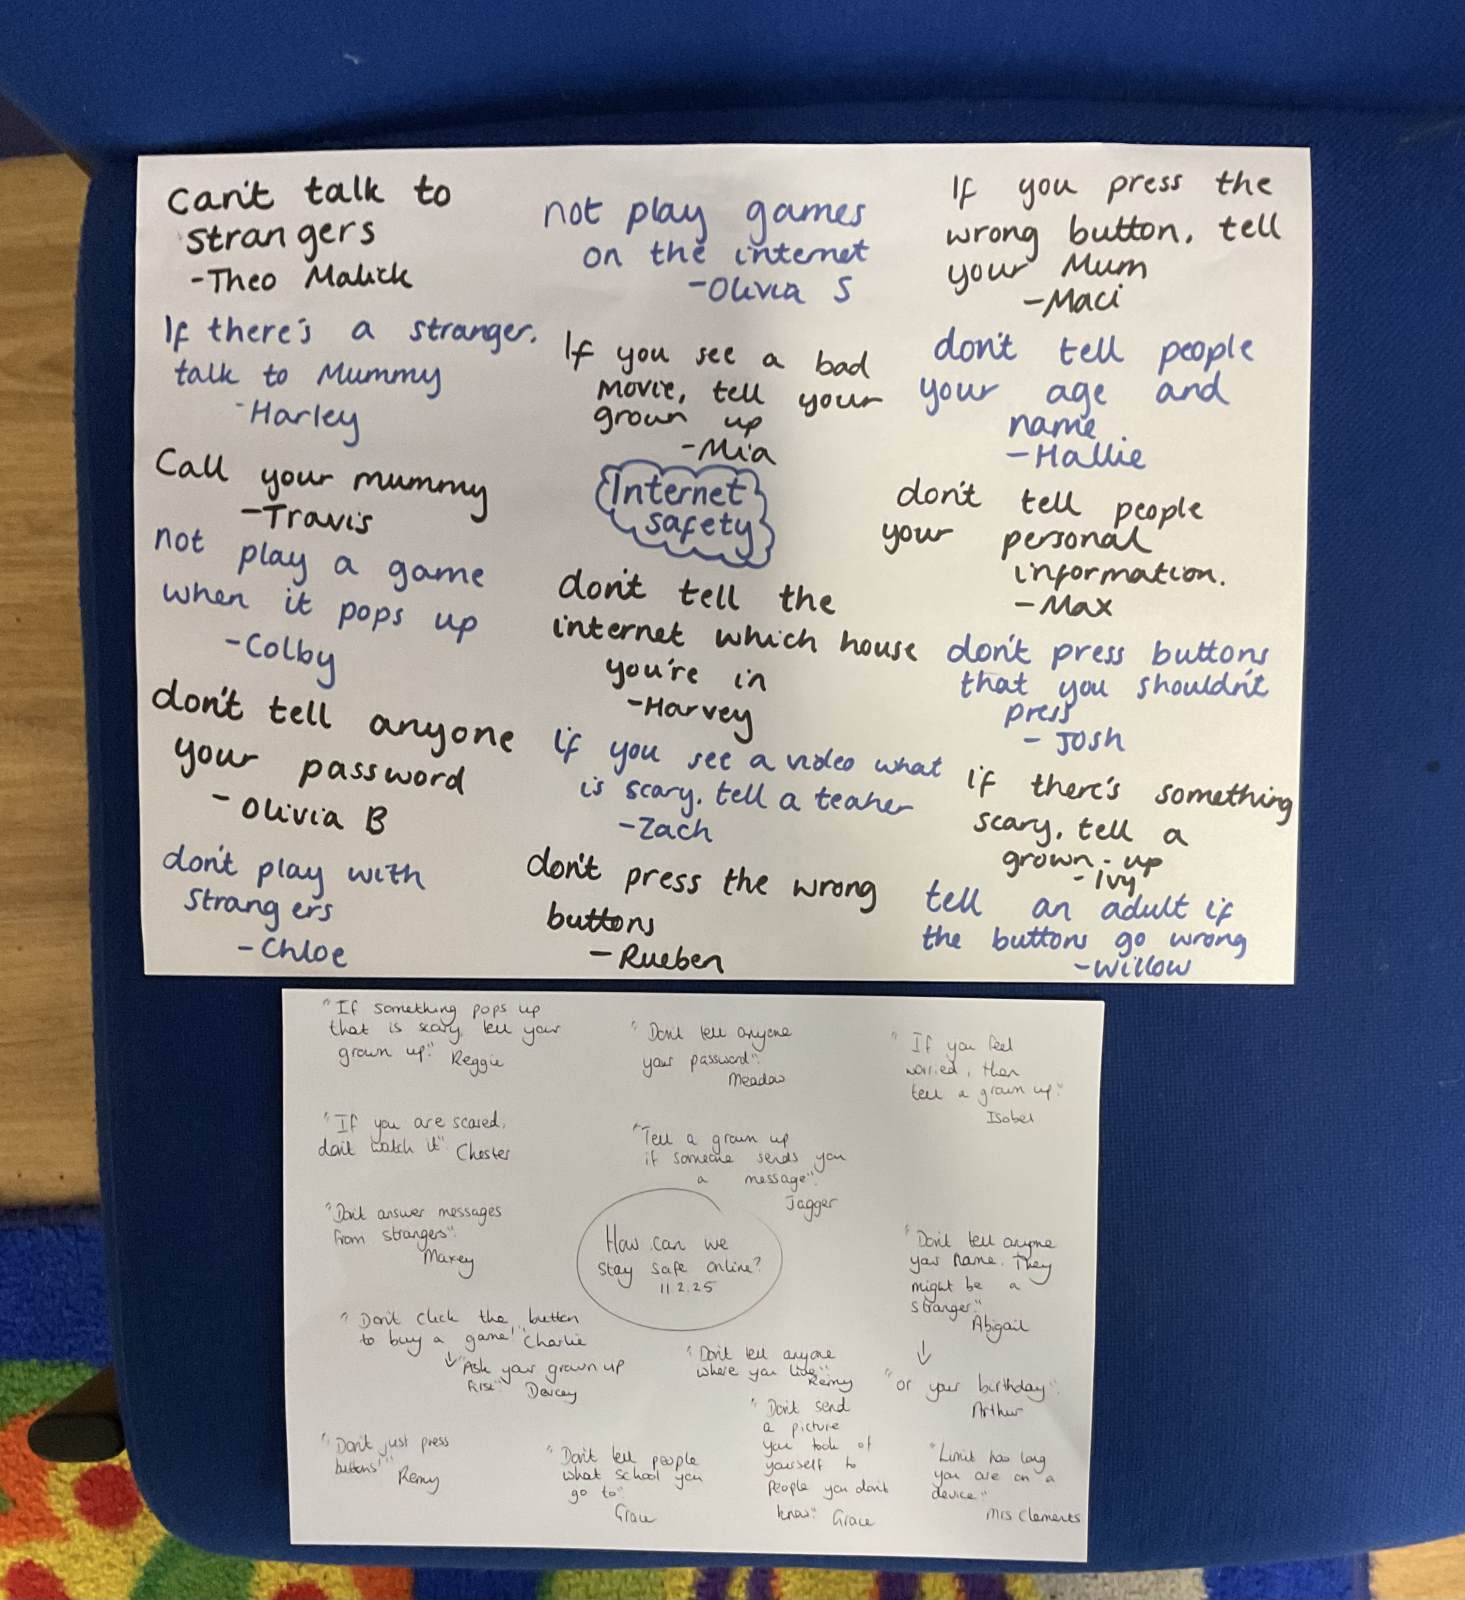 can't talk to
strangers
-Theo Malick
If there's a stranger.
talk to Mummy
-Harley
Call your mummy
-Travis
not play a game
when it pops up
-Colby
don't tell anyone
your password
-Olivia B
don't play with
strangers
-Chloe
not play games
on the internet
-Olivia S
If you see a bad
movie, tell your
grown up
-Mia
Internet
safety
don't tell the
internet which house
you're in
-Harvey
if you see a video what
is scary, tell a teaher
-Zach
don't press the wrong
buttons
-Rueben
If you press the
wrong button, tell
your Mum
-Maci
don't tell people
your age and
name.
-Hallie
don't tell people
your personal
information.
-Max
don't press buttons
that you shouldn't
press
- Josh
if there's something
scary, tell a
grown-up
-Ivy
tell an adult if
the buttons go wrong
-Willow
"If something pops up
that is scary, tell your
grown up." Reggie
"If you are scared,
don't watch it" Chester
"Don't answer messages
from strangers".
Maxey
"Don't click the button
to buy a game!" Charlie
↓ "Ask your grown up
first" Darcey
"Don't just press
buttons!" Remy
"Don't tell anyone
your password".
Meadow
"Tell a grown up
if someone sends you
a message".
Jagger
How can we
stay safe online?
11.2.25
"Don't tell anyone
where you live".
Remy
"Don't tell people
what school you
go to"
Grace
"Don't send
a picture
you took of
yourself to
people you don't
know." Grace
"If you feel
worried, then
tell a grown up."
Isobel
"Don't tell anyone
your name. They
might be a
stranger."
Abigail
↓
"or your birthday".
Arthur
"Limit how long
you are on a
device."
Mrs Clements